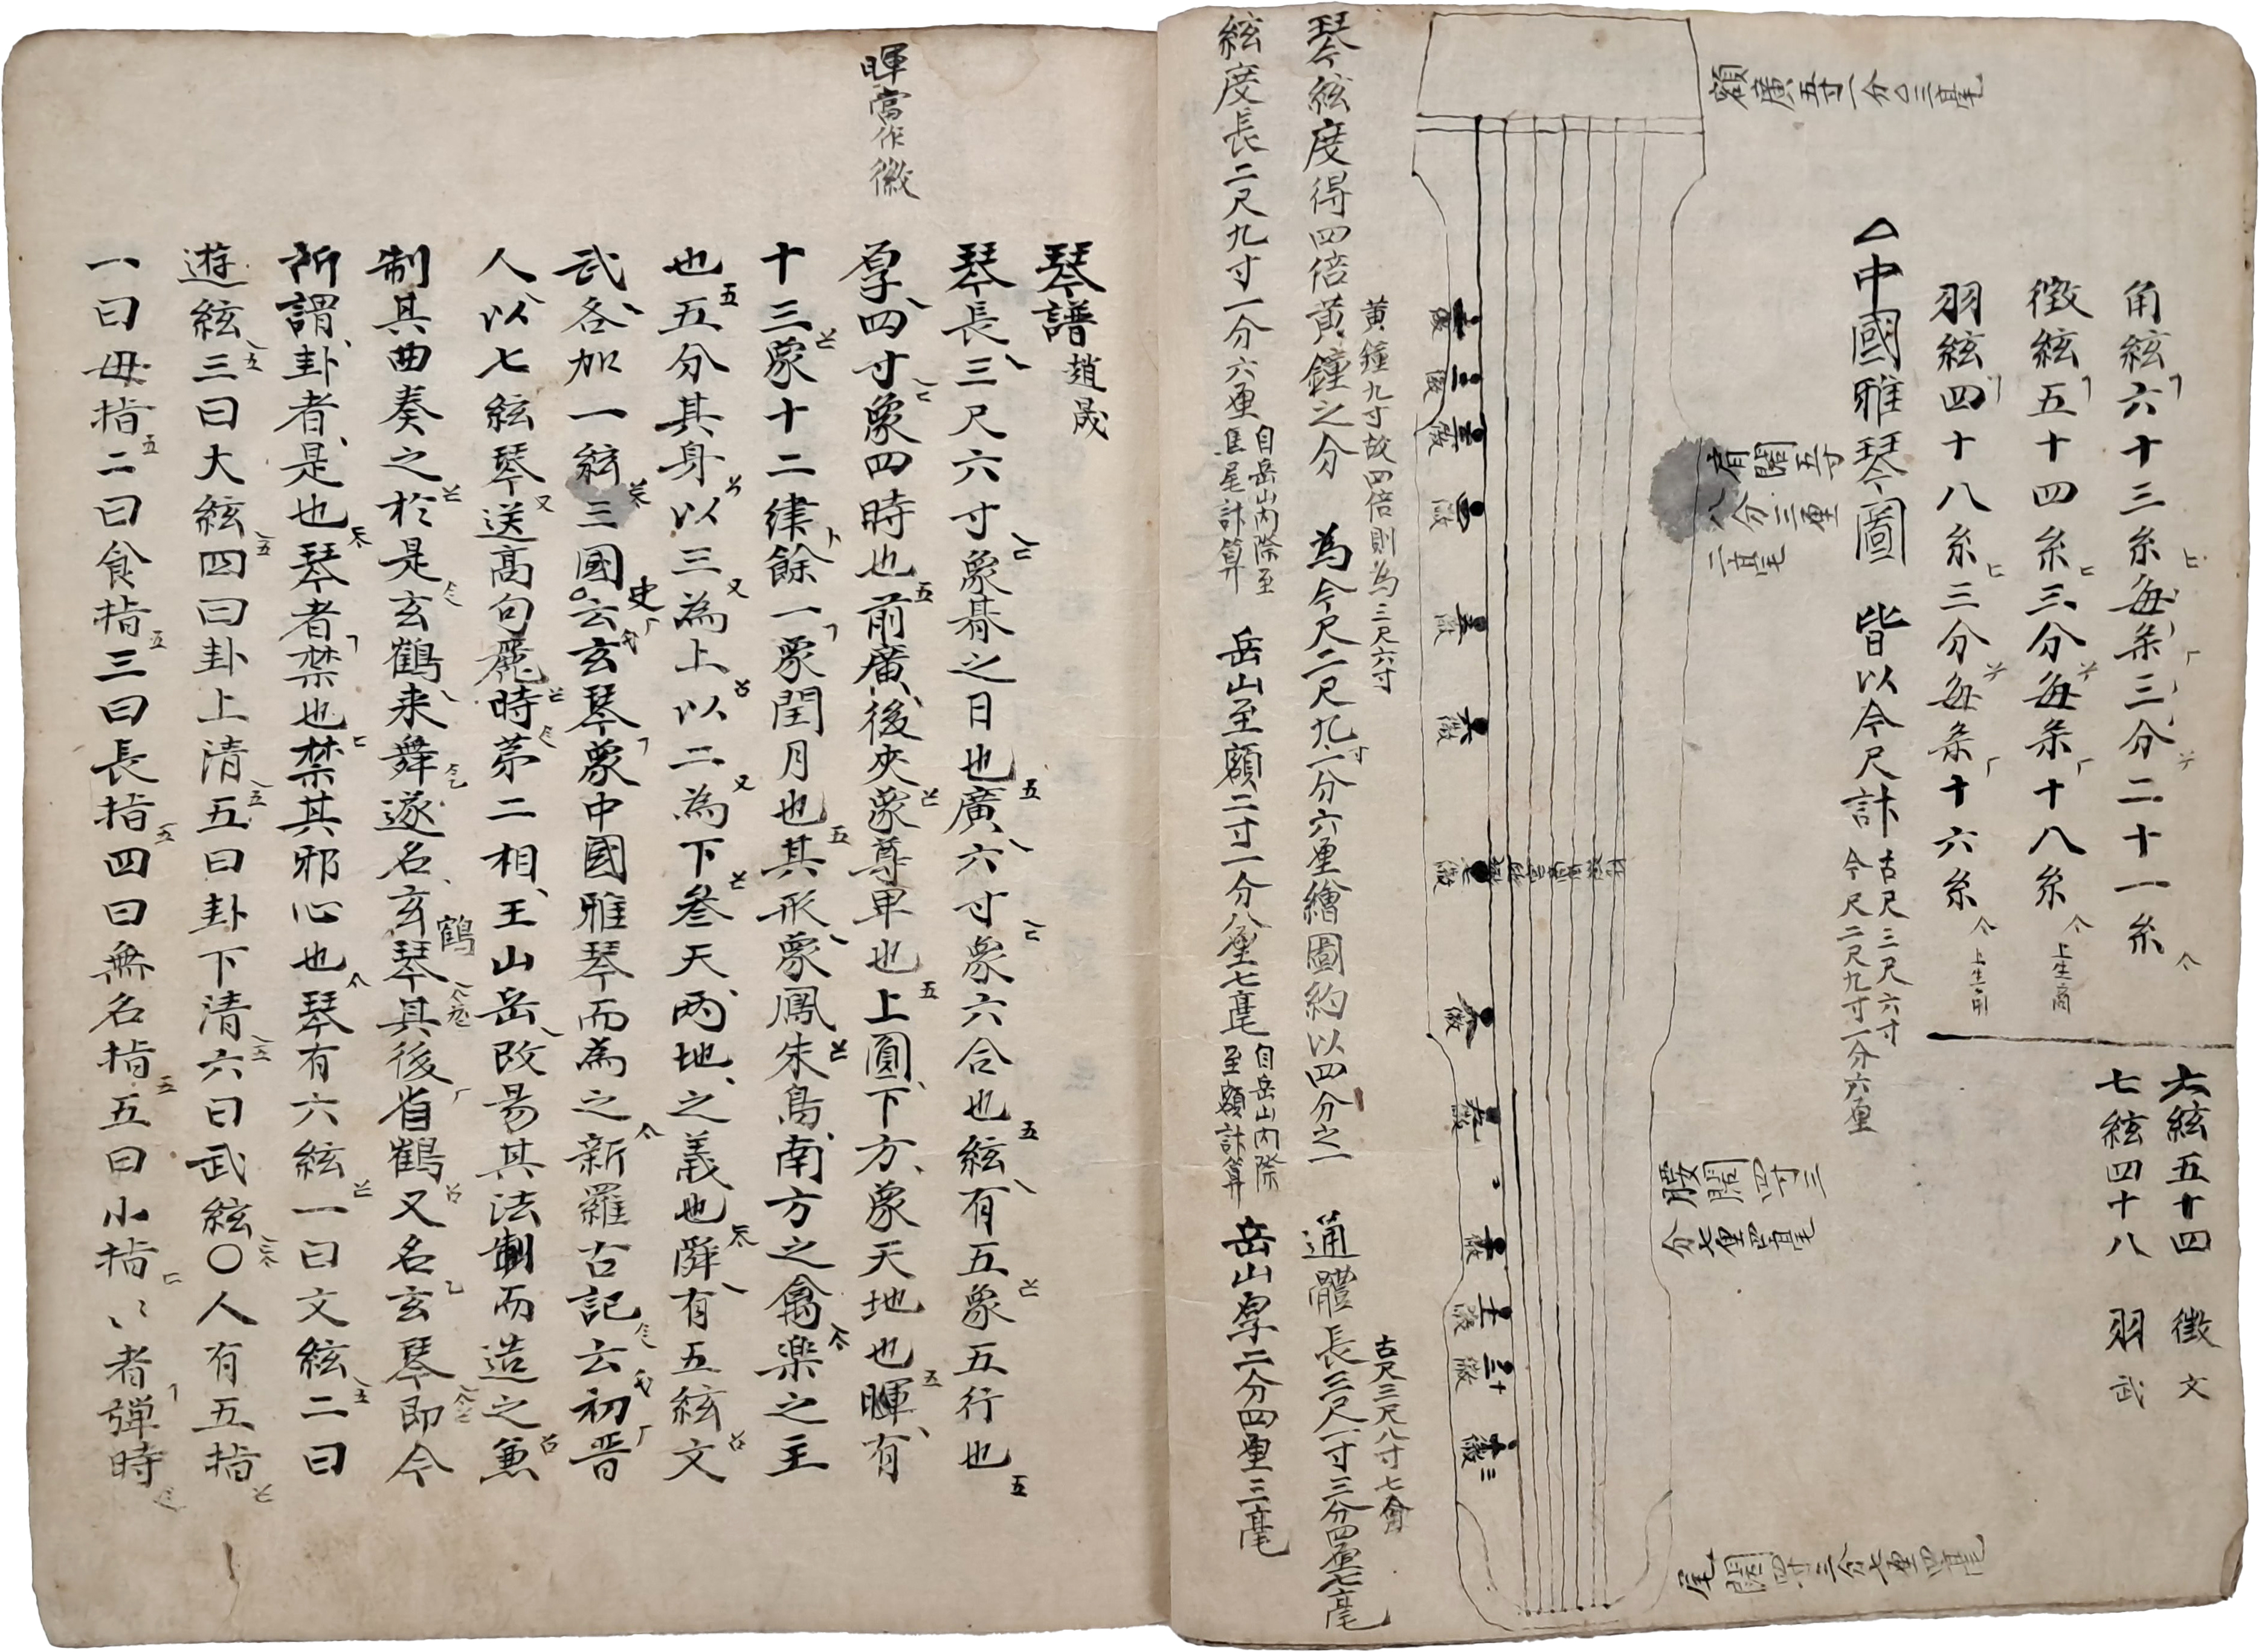 角絃六十三糸每条三分二十一糸
徵絃五十四糸三分每条十八糸 上生商
羽絃四十八糸三分每条十六糸 上生角
六絃五十四 徵 文
七絃四十八 羽 武
△中國雅琴圖 皆以今尺計 古尺三尺六寸
今尺二尺九寸一分六厘
額廣五寸一分〇三毫
肩闊五寸
八分三厘
二毫
腰闊四寸三
分七厘四毫
尾闊四寸三分七厘四毫
一徽
二徽
三徽
四徽
五徽
六徽
七徽
八徽
九徽
十徽
十一徽
十二徽
十三徽
黃鐘九寸故四倍則為三尺六寸
古尺三尺八寸七分
琴絃度得四倍黃鐘之分 為今尺二尺九寸一分六厘繪圖約以四分之一 通體長三尺一寸三分四厘七毫
絃度長二尺九寸一分六厘 自岳山內際至
焦尾計算 岳山至額二寸一分八厘七毫 自岳山內際
至額計算 岳山厚二分四厘三毫
暉當作徽
琴譜 趙晟
琴長三尺六寸象朞之日也廣六寸象六合也絃有五象五行也
厚四寸象四時也前廣後夾象尊卑也上圓下方象天地也暉有
十三象十二律餘一象閏月也其形象鳳朱鳥南方之禽樂之主
也五分其身以三為上以二為下叅天兩地之義也舜有五絃文
武各加一絃三國史云玄琴象中國雅琴而為之新羅古記云初晋
人以七絃琴送高句麗時苐二相王山岳改易其法制而造之兼
制其曲奏之於是玄鶴来舞遂名玄鶴琴其後省鶴又名玄琴即今
所謂卦者是也琴者禁也禁其邪心也琴有六絃一曰文絃二曰
遊絃三曰大絃四曰卦上清五曰卦下清六曰武絃〇人有五指
一曰母指二曰食指三曰長指四曰無名指五曰小指〻者彈時